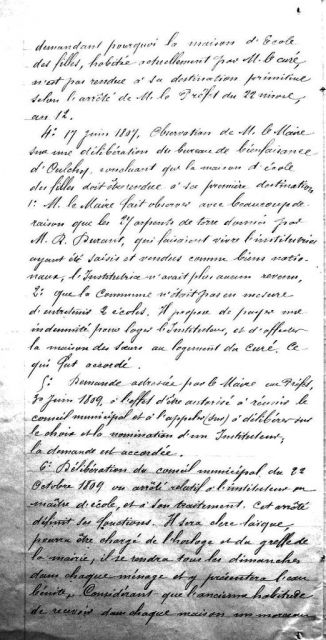 demandant pourquoi la maison d'Ecole
des filles, habitée actuellement par M. le curé,
n'est pas rendue à sa destination primitive
selon l'arrêté de M. le Préfet du 22 nivose,
an 12.
4° 17 juin 1807, Observation de M. le Maire
sur une délibération du bureau de bienfaisance
d'Oulchy, concluant que la maison d'école
des filles doit être rendue à sa première destination
1° M. le Maire fait observer avec beaucoup de
raison que les 27 arpents de terre donnés par
M. R. Durant, qui faisaient vivre l'institutrice
ayant été saisis et vendus comme biens natio-
naux, l'Institutrice n'avait plus aucun revenu,
2° que la Commune n'était pas en mesure
d'entretenir 2 écoles. Il propose de payer une
indemnité pour loger l'Instituteur, et d'affecter
la maison des sœurs au logement du curé. Ce
qui fut accordé.
5° Demande adressée par le Maire au Préfet,
30 juin 1809, à l'effet d'être autorisé à réunir le
conseil municipal et à l'appeler (sus) à délibérer sur
le choix et la nomination d'un Instituteur,
la demande est accordée.
6° Délibération du conseil municipal du 22
Octobre 1809 un arrêté relatif à l'instituteur ou
maître d'école, et à son traitement. Cet arrêté
définit ses fonctions. Il sera clerc laïque,
pourra être chargé de l'horloge et du greffe de
la mairie, il se rendra tous les dimanches
dans chaque ménage et y présentera l'eau
bénite. Considérant que l'ancienne habitude
de recevoir dans chaque maison un morceau